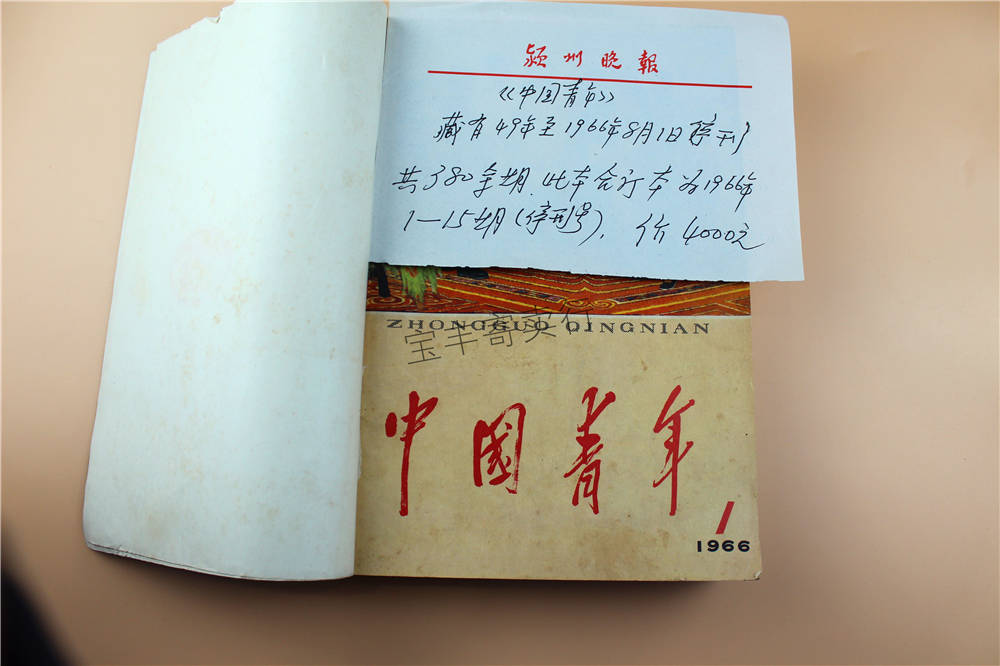 颍州晚報
《中国青年》
藏有49年至1966年8月1日停刊
共380余期.此本合订本为1966年
1—15期(停刊号), 价4000元
ZHONGGUO QINGNIAN
宝丰寄卖行
中國青年
1
1966